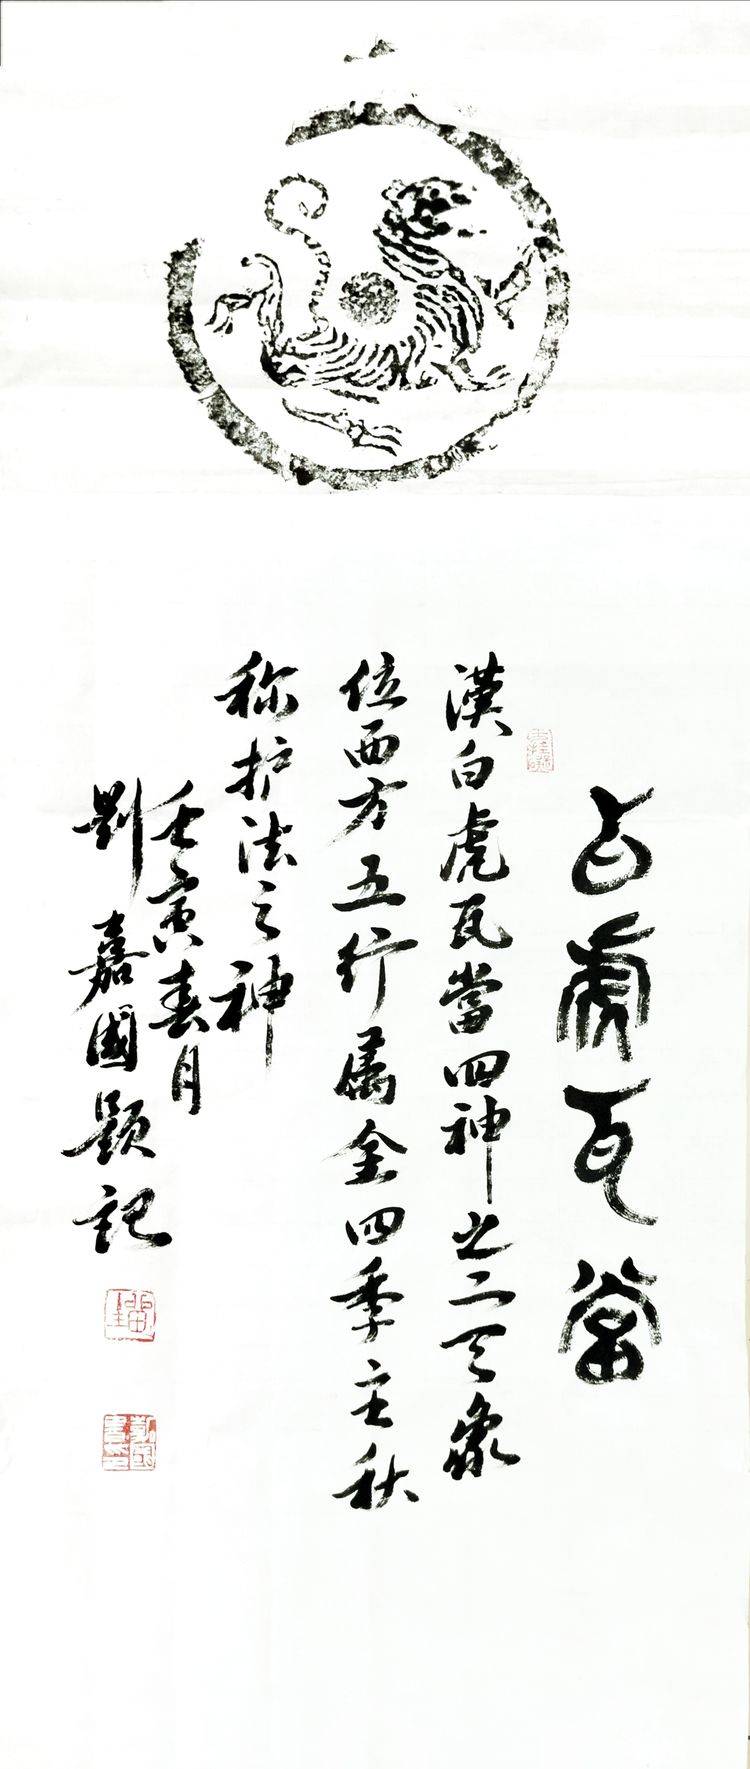 白虎瓦當
漢白虎瓦當四神之二天象
位西方五行属金四季主秋
称护法之神
壬寅春月
劉嘉國题記